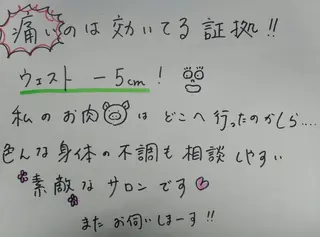 痛いのは効いてる証拠!!
ウェスト －5cm!
私のお肉はどこへ行ったのかしら....
色んな身体の不調も相談しやすい
素敵なサロンです
またお伺いしまーす!!